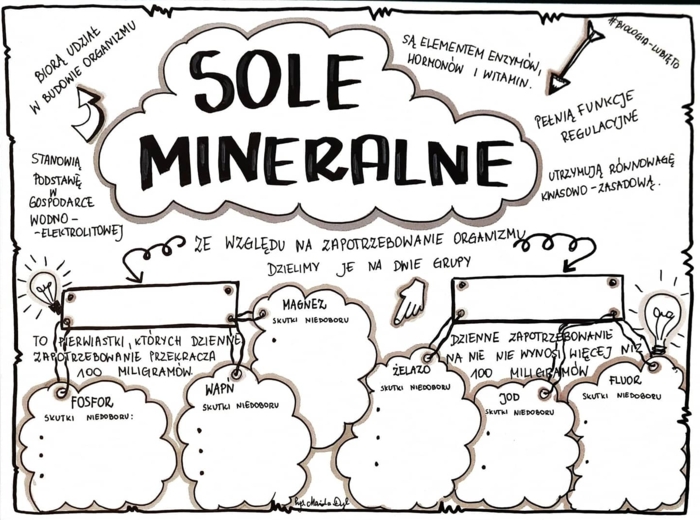 #BIOLOGIA-LUBIĘTO
BIORĄ UDZIAŁ
W BUDOWIE ORGANIZMU
SOLE
MINERALNE
SĄ ELEMENTEM ENZYMÓW,
HORMONÓW I WITAMIN.
PEŁNIĄ FUNKCJE
REGULACYJNE
STANOWIĄ
PODSTAWĘ
W
GOSPODARCE
WODNO-
-ELEKTROLITOWEJ
UTRZYMUJĄ RÓWNOWAGĘ
KWASOWO-ZASADOWĄ.
ZE WZGLĘDU NA ZAPOTRZEBOWANIE ORGANIZMU
DZIELIMY JE NA DWIE GRUPY
TO PIERWIASTKI, KTÓRYCH DZIENNE
ZAPOTRZEBOWANIE PRZEKRACZA
100 MILIGRAMÓW
MAGNEZ
SKUTKI NIEDOBORU
DZIENNE ZAPOTRZEBOWANIE
NA NIE NIE WYNOSI WIĘCEJ NIŻ
100 MILIGRAMÓW
FOSFOR
SKUTKI NIEDOBORU:
WAPŃ
SKUTKI NIEDOBORU
ŻELAZO
SKUTKI NIEDOBORU
JOD
SKUTKI NIEDOBORU
FLUOR
SKUTKI NIEDOBORU